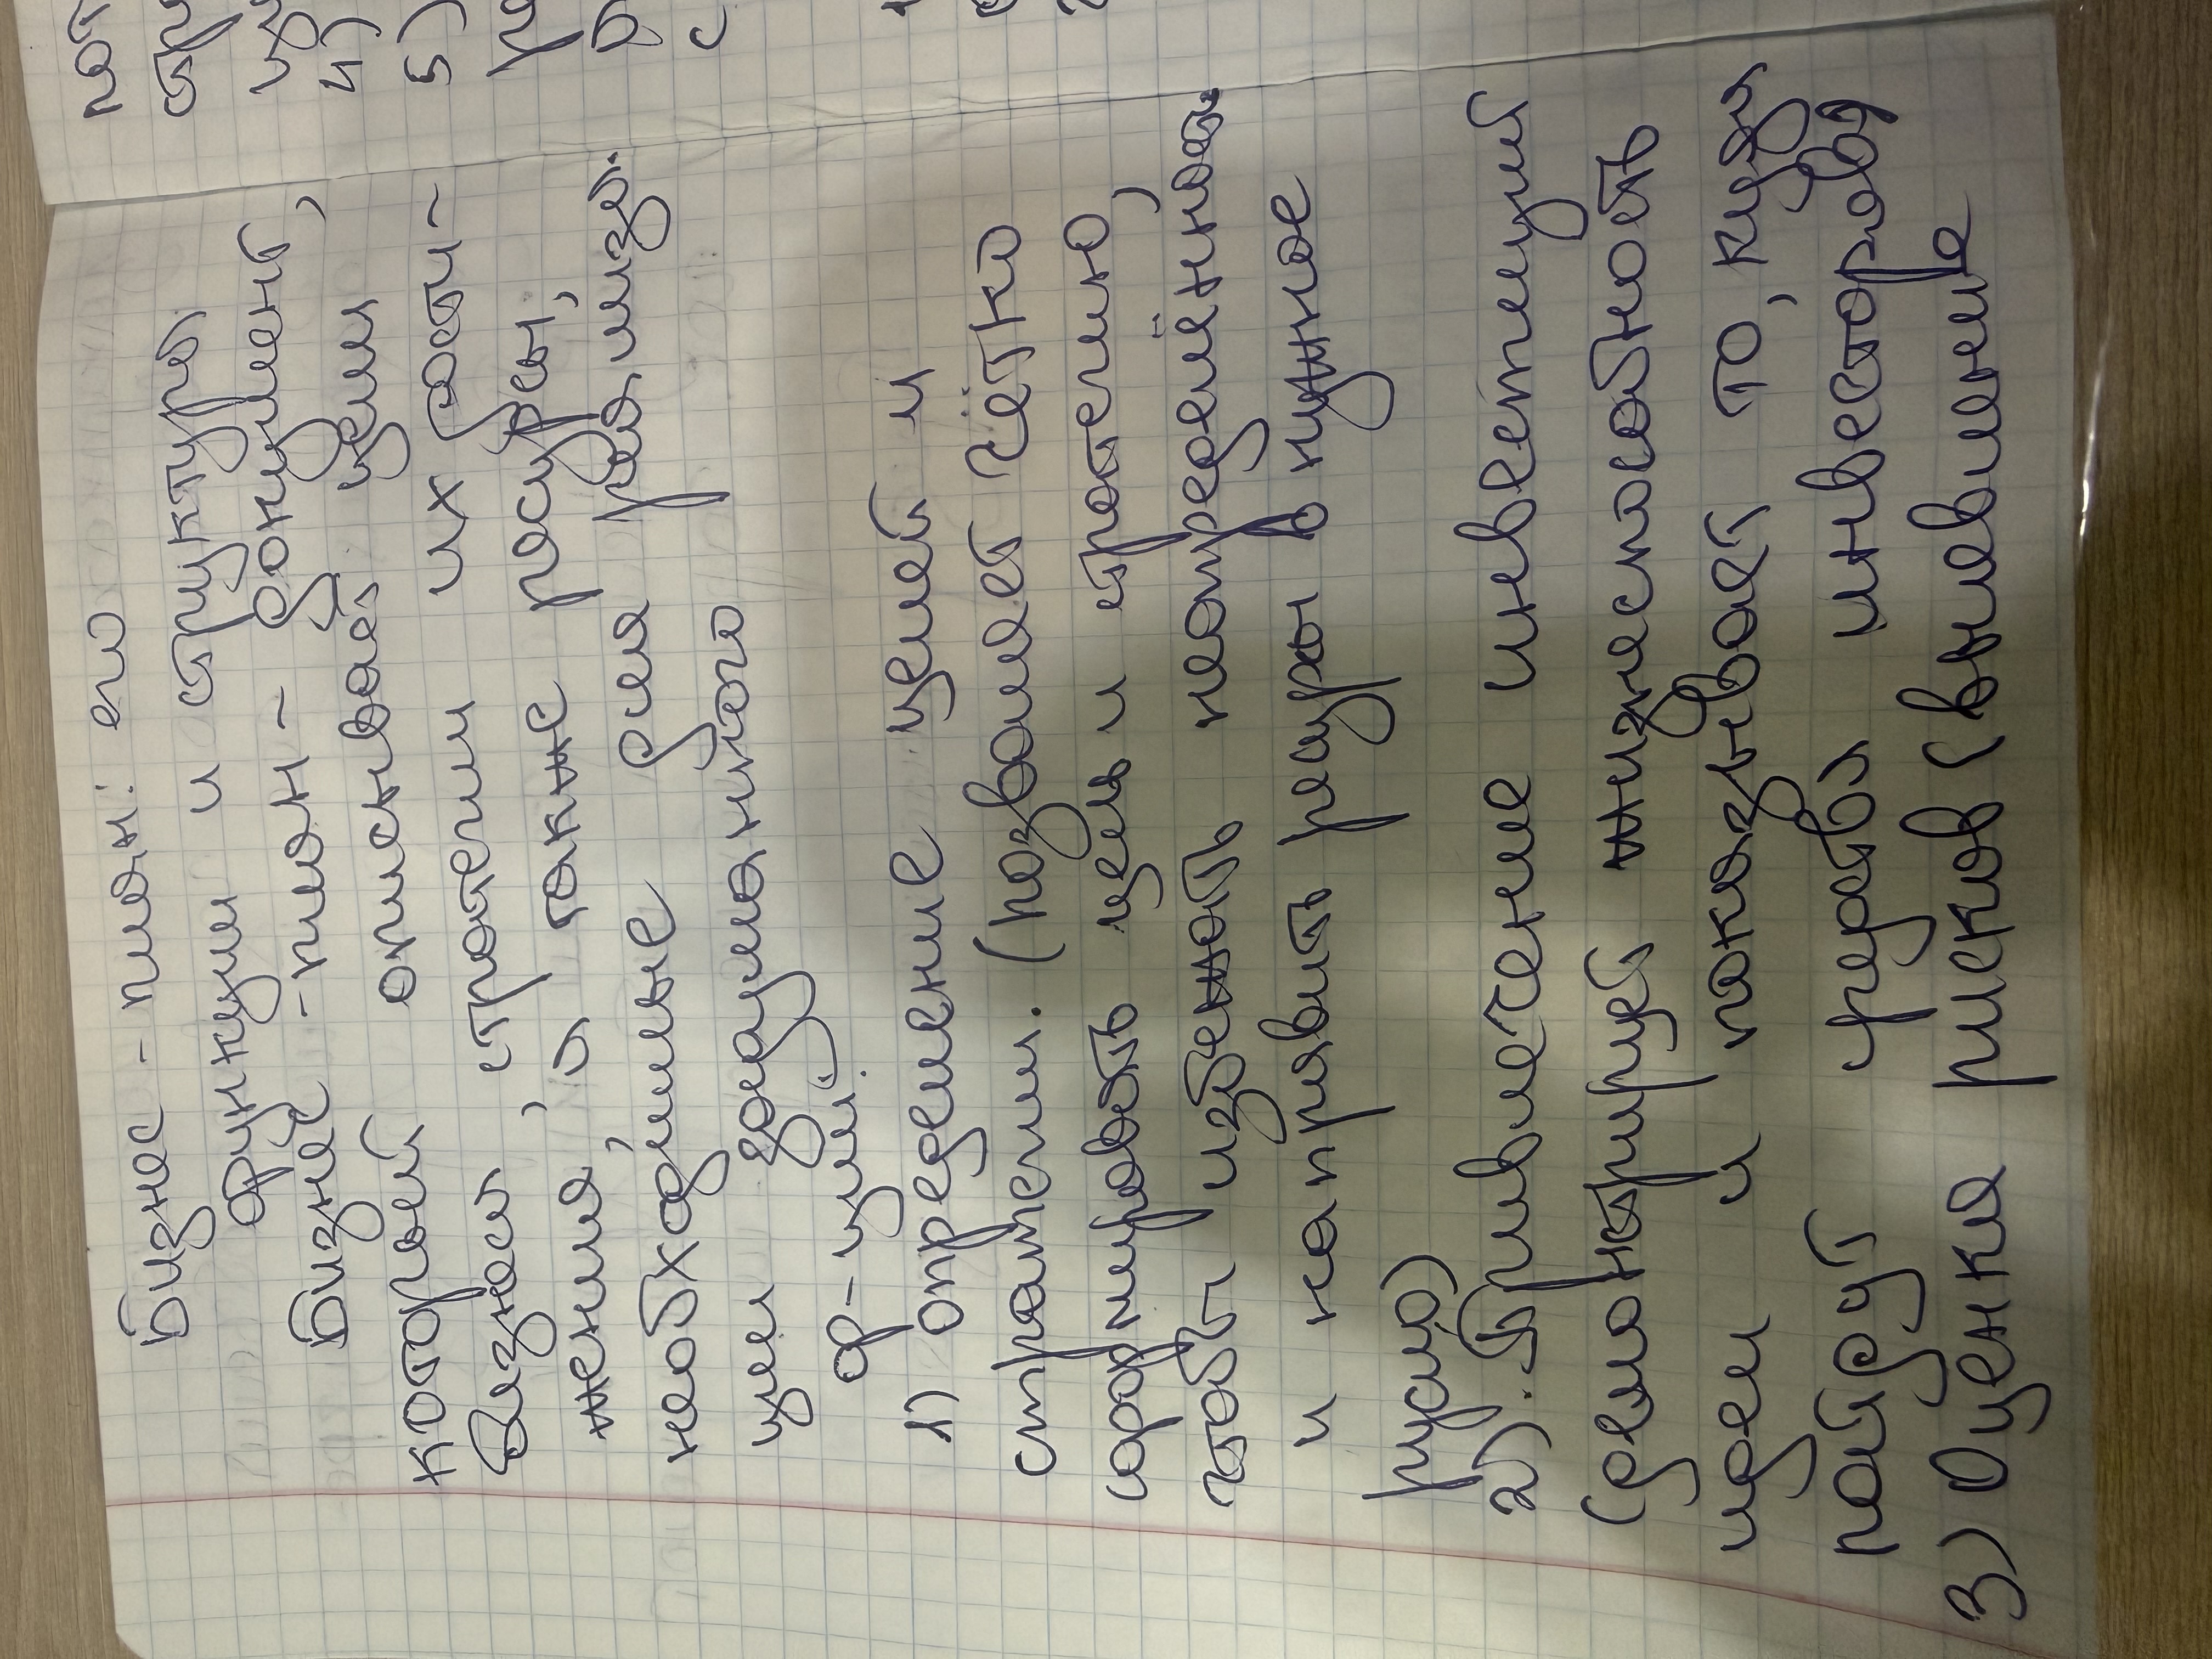 Бизнес-план: его
функции и структура
Бизнес-план - документ,
который описывает цели
бизнеса, стратегии их дости-
жения, а также ресурсы,
необходимые для реализа-
ции задуманного
ф-ции:
1) определение целей и
стратегии. (позволяет чётко
сформировать цель и стратегию,
чтобы избежать неопределённости
и направить ресурсы в нужное
русло)
2). Привлечение инвестиций
(демонстрирует жизнеспособность
идеи и показывает то, куда
пойдут средства инвесторов)
3) Оценка рисков (выявление
4)
5)